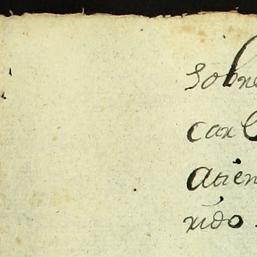 sobre
car
atien
rido.